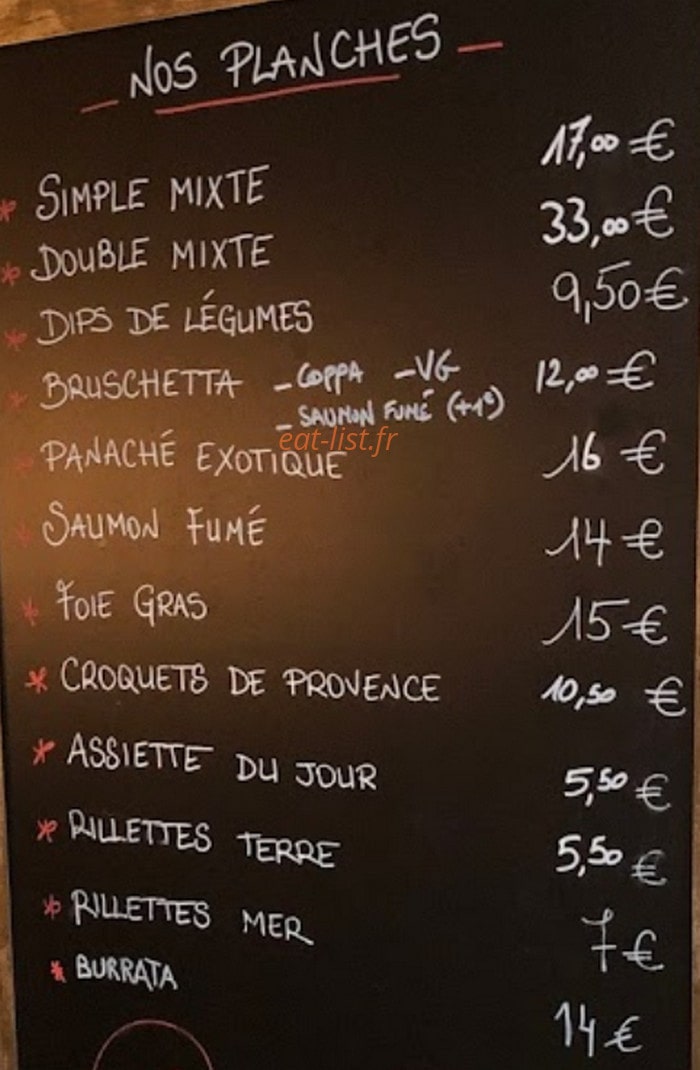 NOS PLANCHES
* SIMPLE MIXTE 17,00 €
* DOUBLE MIXTE 33,00 €
* DIPS DE LÉGUMES 9,50 €
* BRUSCHETTA - COPPA - VG 12,00 €
- SAUMON FUMÉ (+1€)
eat-list.fr
* PANACHÉ EXOTIQUE 16 €
* SAUMON FUMÉ 14 €
* FOIE GRAS 15 €
* CROQUETS DE PROVENCE 10,50 €
* ASSIETTE DU JOUR 5,50 €
* RILLETTES TERRE 5,50 €
* RILLETTES MER 7 €
* BURRATA 14 €